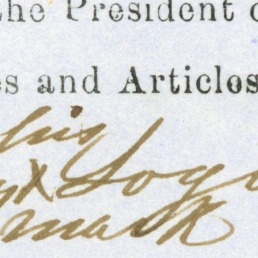 the President o
es and Articles
his
X Log
mark